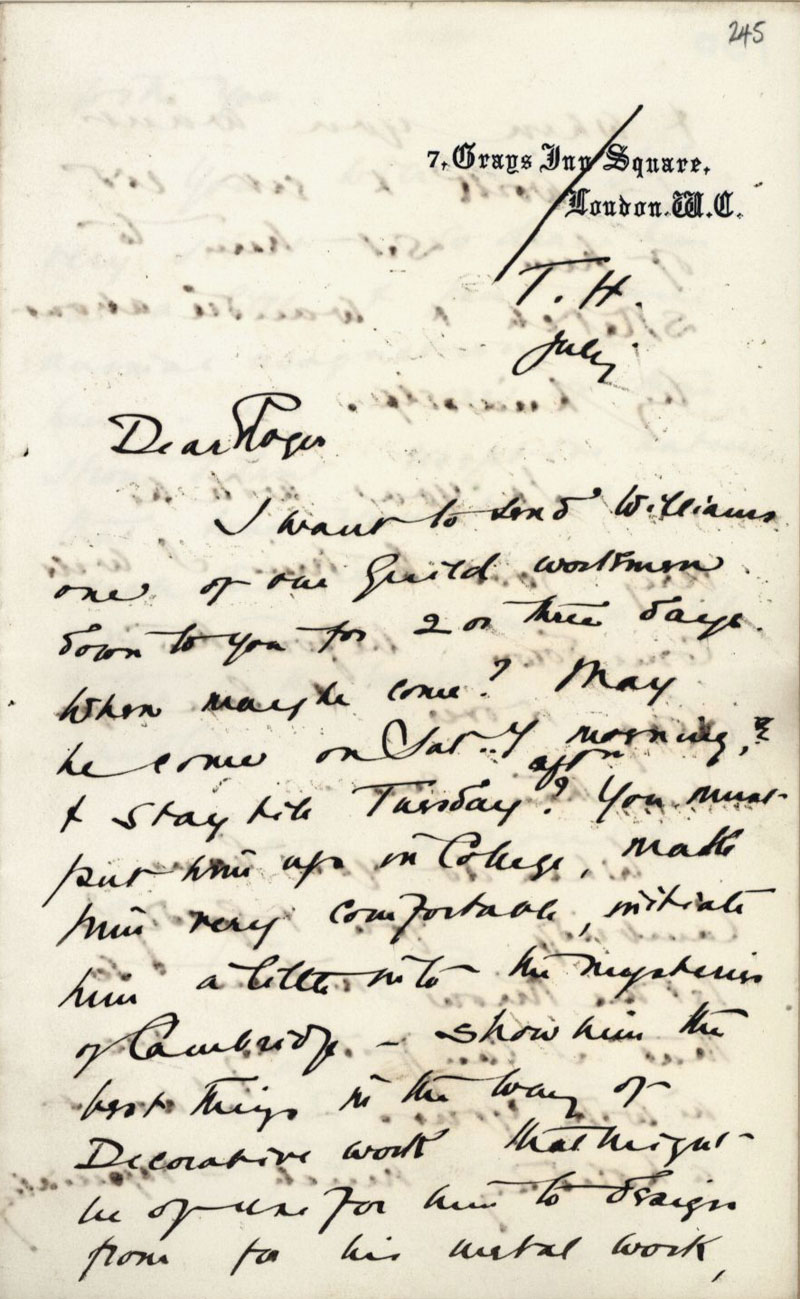 245
7, Grays Inn Square,
London. W.C.
T. H.
July
Dear Roger
I want to send Williams
one of our Guild workmen
down to you for 2 or three days.
When may he come? May
he come on Sat..y morning,
aftn
& stay till Tuesday? You must
put him up in College, make
him very comfortable, initiate
him a little into the mysteries
of Cambridge – show him the
best things in the way of
Decorative work that might
be of use for him to design
from for his metal work,